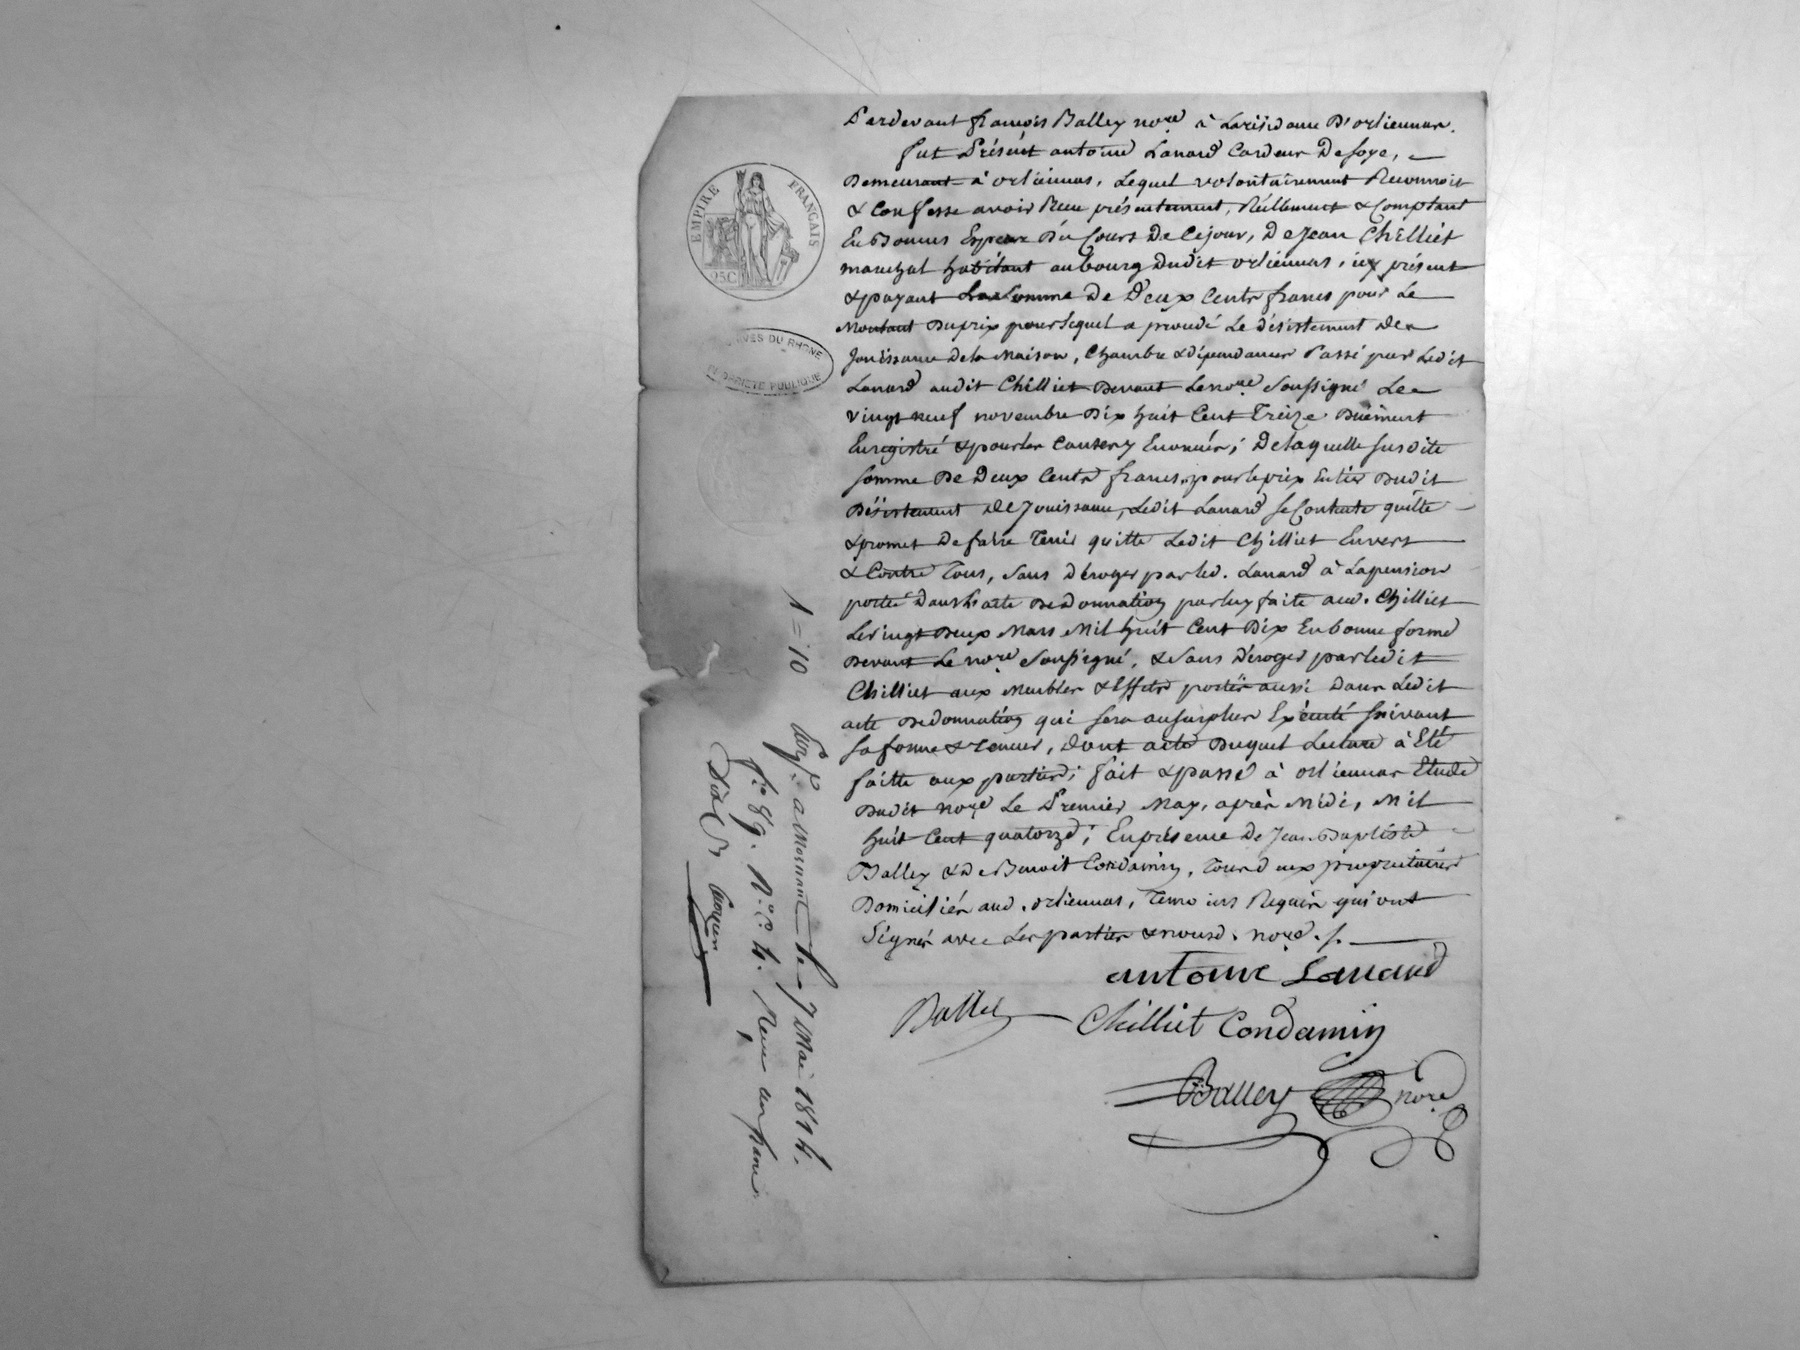 Pardevant françois Balley no.re à Larésidance D'orliennas.
fut Présent antoine Lanard Cardeur De soye,
Demeurant à orliennas, Lequel volontairement Reconnoit
& Confesse avoir Recu présentement, Réellement & Comptant
En Bonnes Especes Du Cours De Cejour, De Jean Chilliet
marechal habitant aubourg Dudit orliennas, icy présent
& payant La Somme De Deux Cents francs pour Le
Montant Duprix pour lequel a procédé Le désistement De
Jouissance Dela Maison, Chambre & dépendances Passé par Ledit
Lanard audit Chilliet Devant Leno.re Soussigné Le
vingt neuf novembre Dix huit Cent Treize Duement
Enregistré & pour les Causes y Enoncées; De laquelle susdite
somme De Deux Cents francs, pour leprix Entier Dudit
Désistement De Jouissance, Ledit Lanard se Contente quitte
& promet De faire Tenir quitte Ledit Chilliet Envers
& Contre Tous, Sans Déroger par led. Lanard à Lapension
portée Dans L'acte De Donnation par luy faite aud. Chilliet
Le vingt Deux Mars Mil huit Cent Dix En bonne forme
Devant Le no.re Soussigné, & Sans Déroger par ledit
Chilliet aux Meubles & Effets portés aussi Dans Ledit
acte De Donnation qui sera au surplus Exécuté suivant
sa forme & Teneur, Dont acte Duquel Lecture à Eté
faitte aux parties; fait & passé à orliennas Etude
Dudit no.re Le Premier May, après Midi, Mil
huit Cent quatorze; En présence De Jean-Baptiste
Balley & De Benoit Condamin, Tous deux propriétaires
Domiciliés aud. orliennas, Témoins Requis qui ont
Signés avec Les parties & nousd. no.re ./.
antoine Lanard
Balley Chilliet Condamin
Balley no.re
EMPIRE FRANÇAIS
25C
ARCHIVES DU RHONE
PROPRIETE PUBLIQUE
1 = 10 Enreg.é à Mornant Le 7 Mai 1814.
f.o 89. R.o C. 4. Reçu un franc